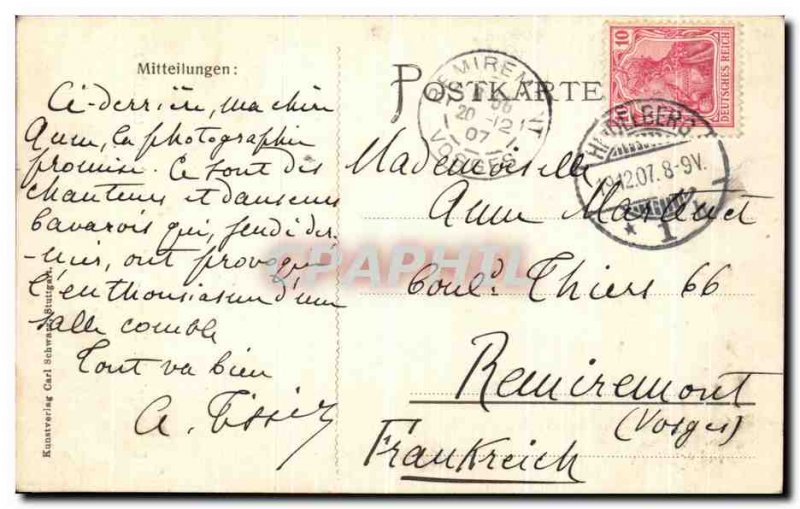 Mitteilungen:
POSTKARTE
Ci-derrière, ma chère
Anna, la photographie
promise. Ce sont des
chanteurs et danseurs
bavarois qui, jeudi der-
nier, ont provoqué
l'enthousiasme d'une
salle comble
Tout va bien
A. Tissier
Mademoiselle
Anna
Boulᵈ Thiers 66
Remiremont
(Vosges)
Frankreich
Kunstverlag Carl Schwarz, Stuttgart.
REMIREMONT
20 -12
07
VOSGES
HEIDELBERG
19.12.07. 8-9V.
* 1 *
10
DEUTSCHES REICH
CPAPHIL